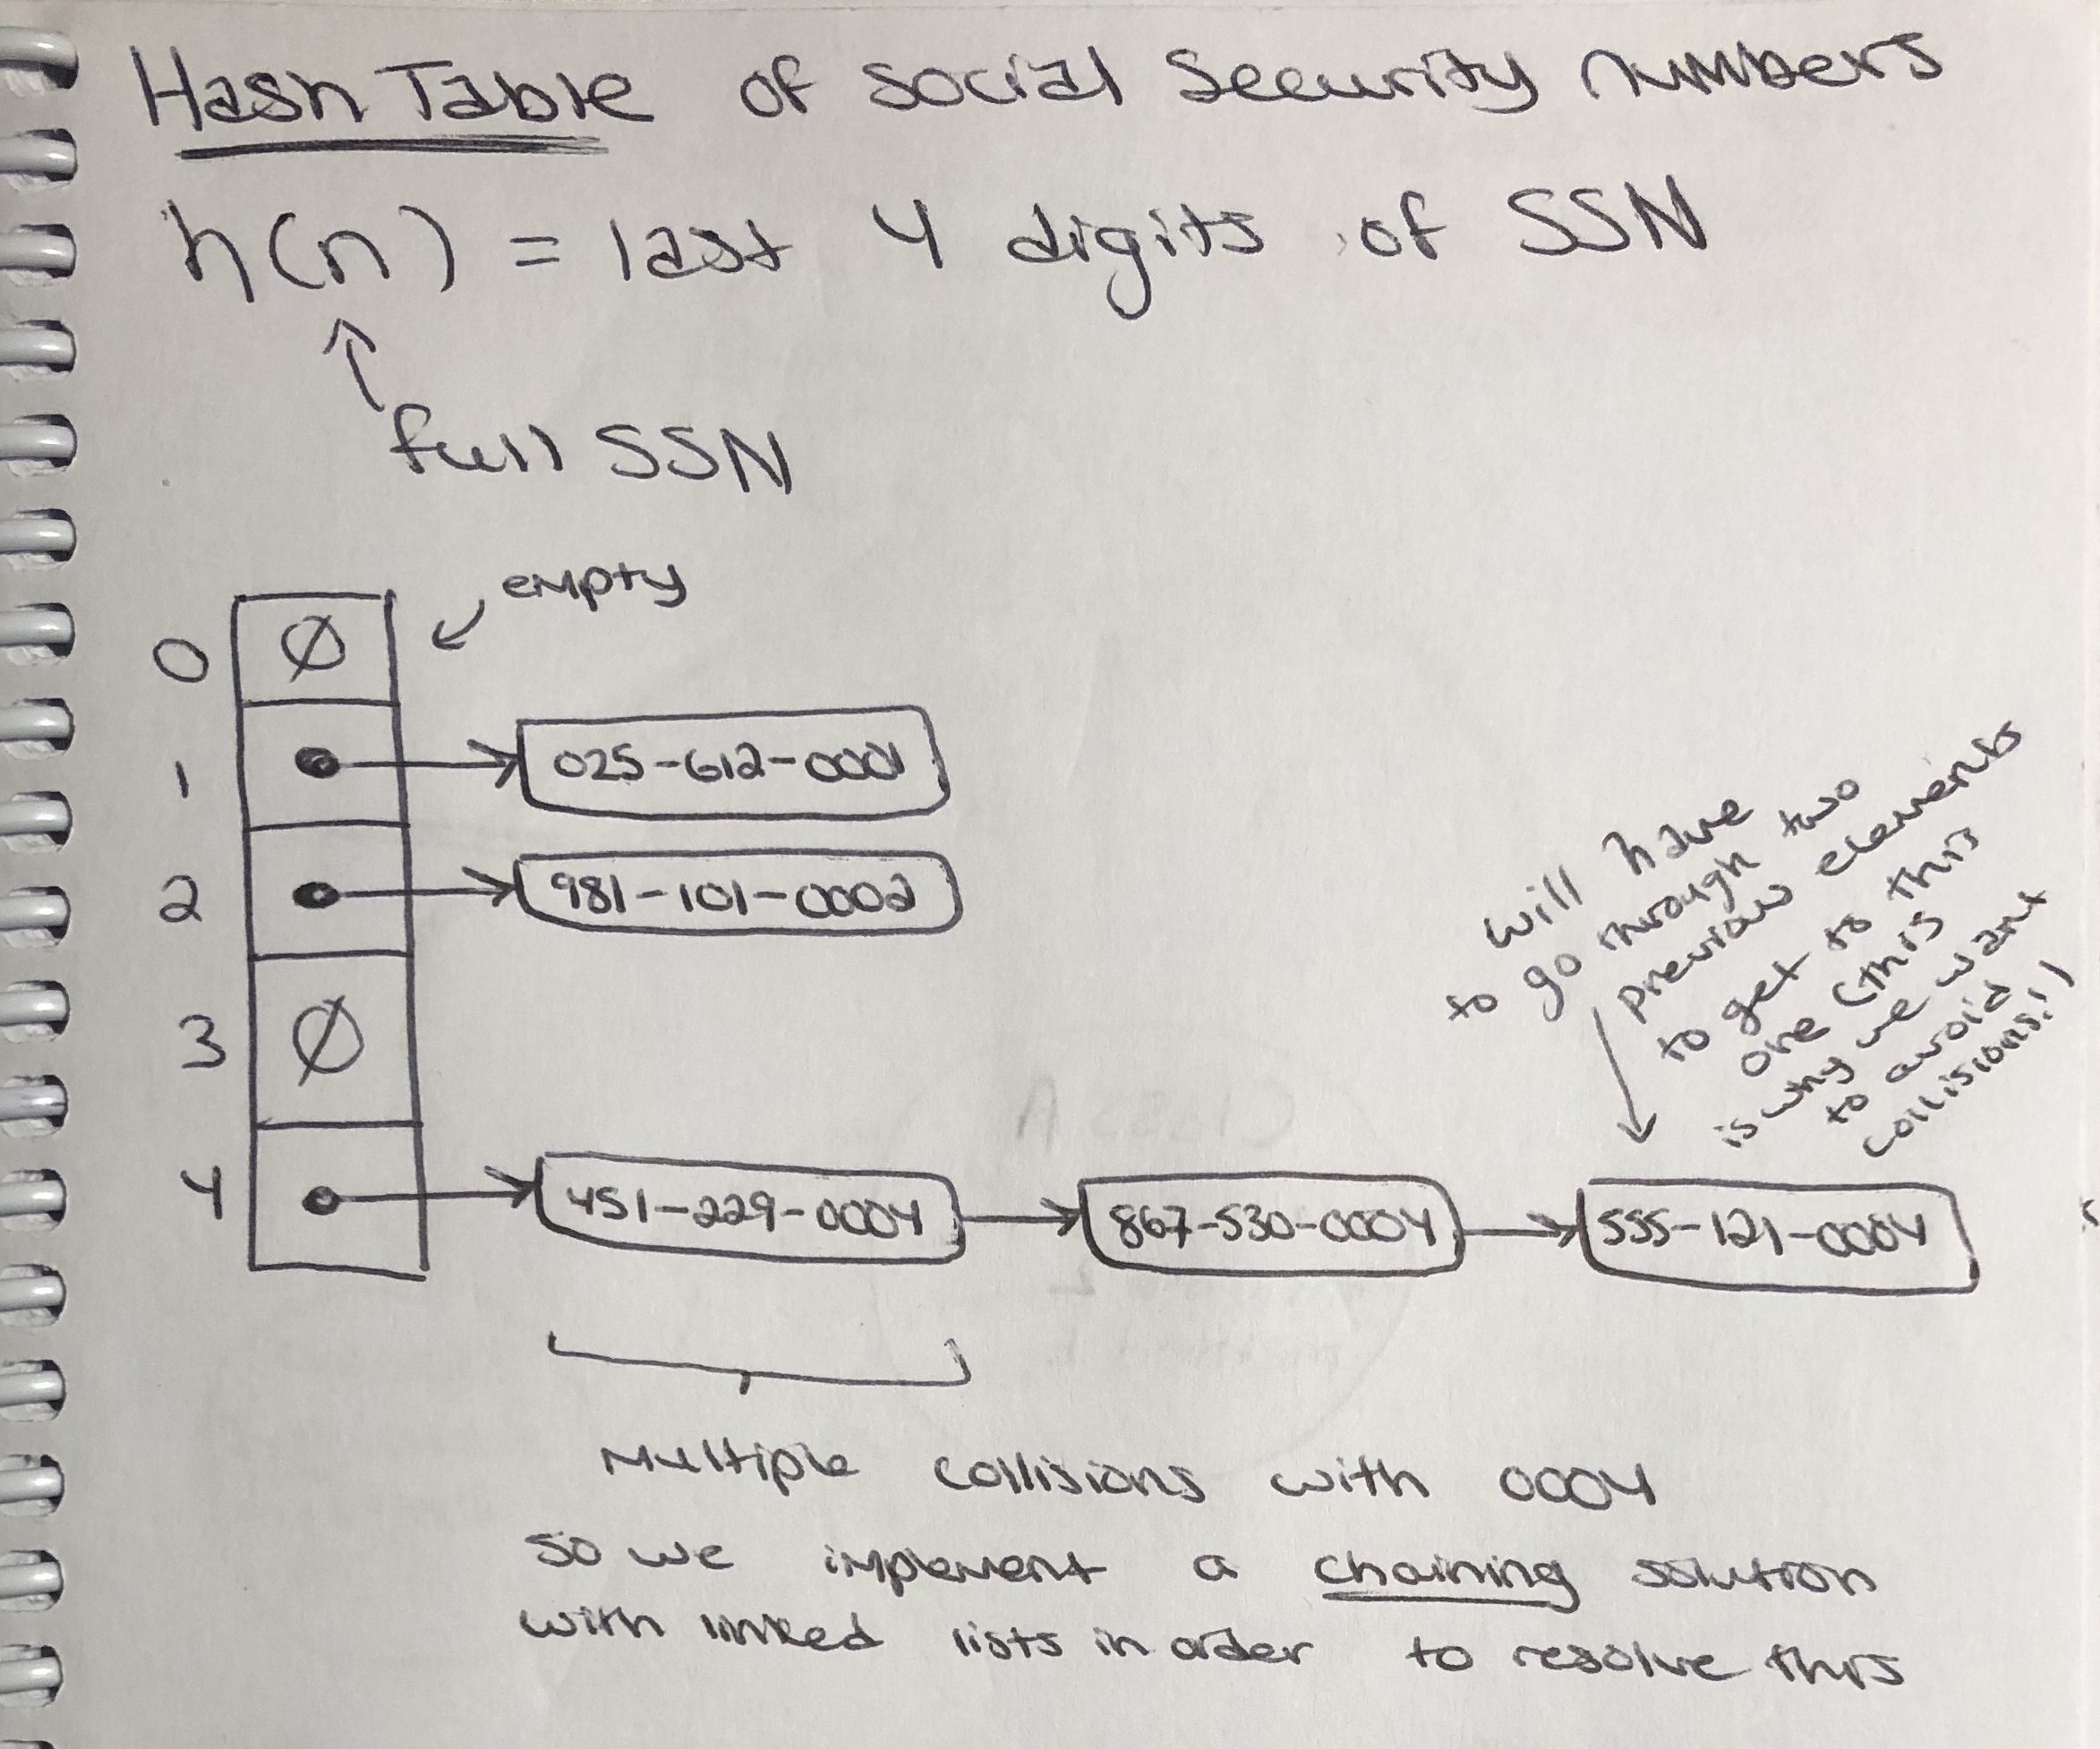 Hash Table of social security numbers
h(n) = last 4 digits of SSN
full SSN
empty
0 Ø
1 025-612-0001
2 981-101-0002
3 Ø
4 451-229-0004 867-530-0004 555-121-0004
will have
to go through two
previous elements
to get to this
one (this
is why we want
to avoid
collisions!)
Multiple collisions with 0004
so we implement a chaining solution
with linked lists in order to resolve this